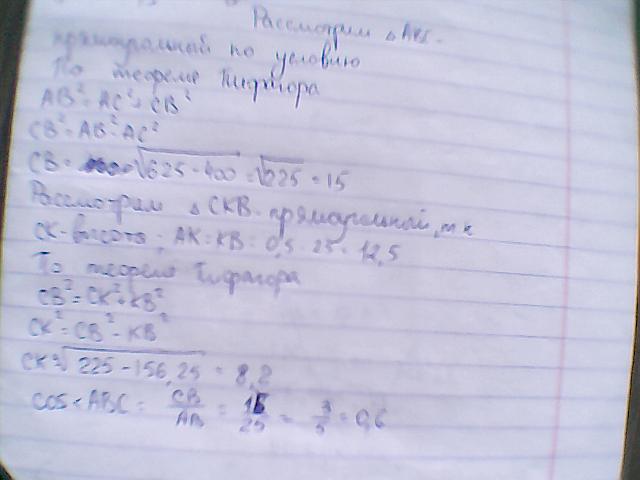 Рассмотрим △ ABC -
прямоугольный по условию
По теореме Пифагора
AB² = AC² + CB²
CB² = AB² - AC²
CB = √625 - 400 = √225 = 15
Рассмотрим △ CKB - прямоугольный, т к
CK - высота ; AK = KB = 0,5 · 25 = 12,5
По теореме Пифагора
CB² = CK² + KB²
CK² = CB² - KB²
CK = √225 - 156,25 = 8,2
cos < ABC = CB/AB = 15/25 = 3/5 = 0,6